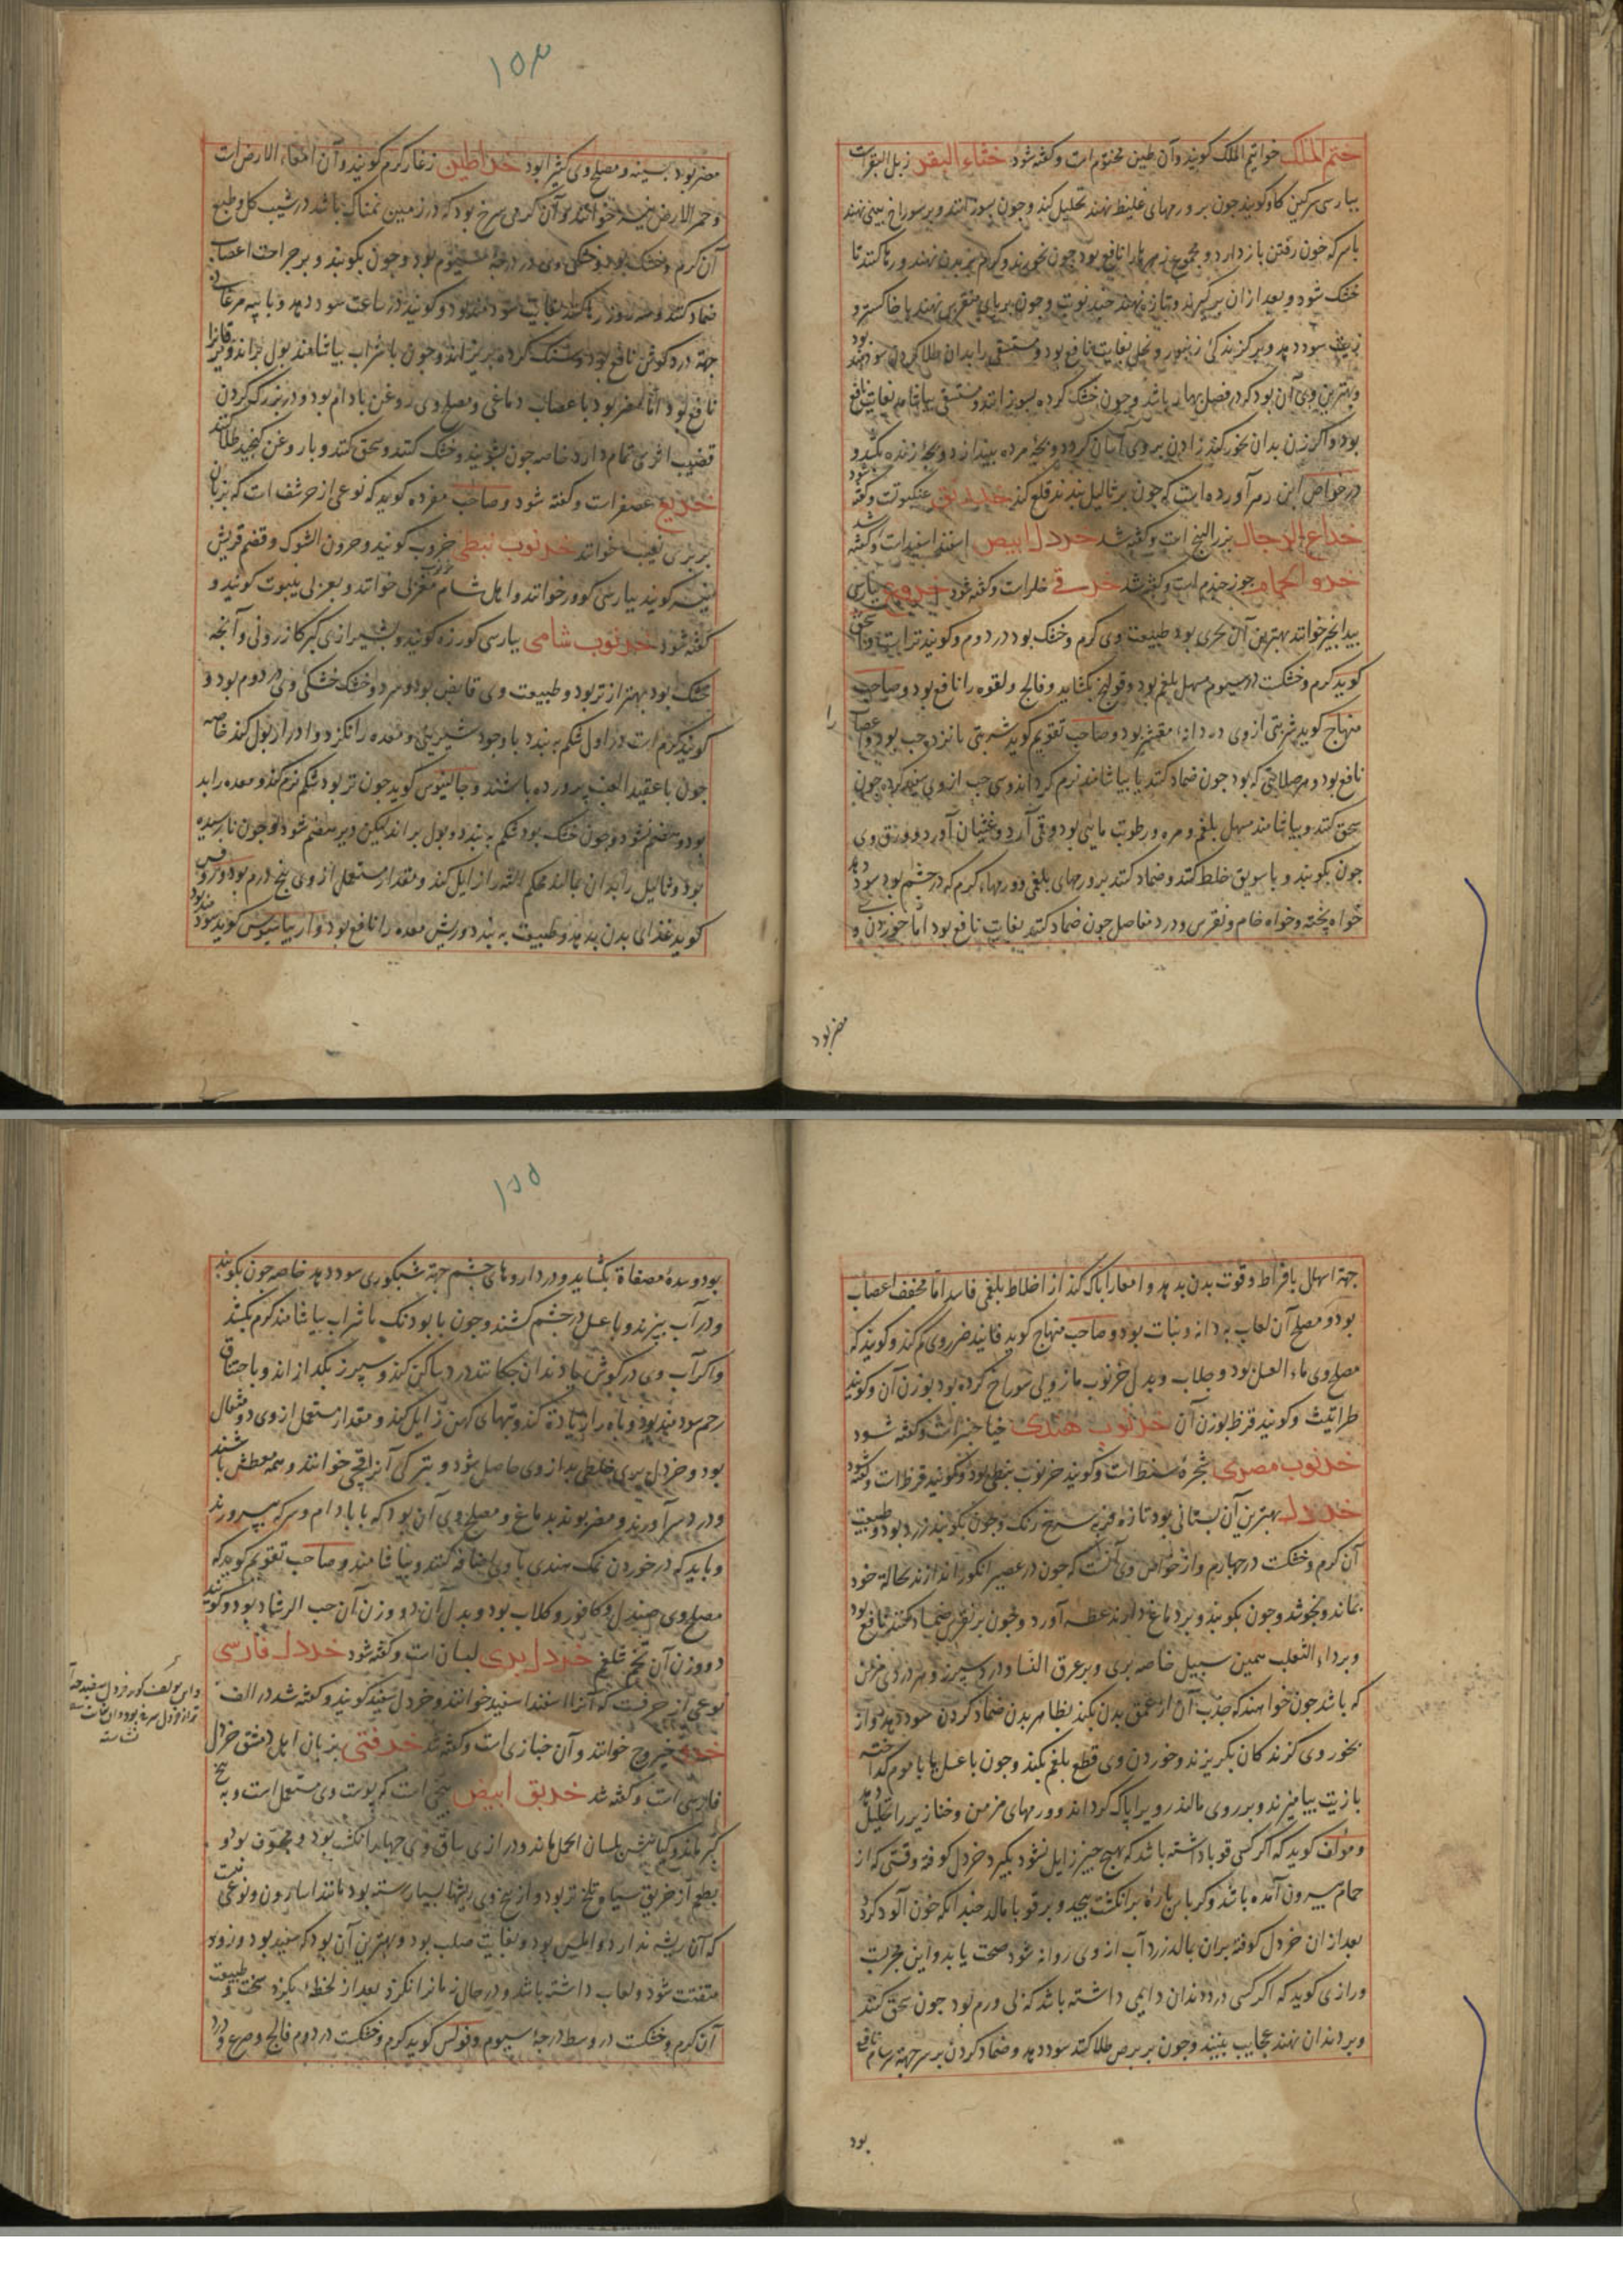 ختم الملک خواتیم الملک کویند وآن طین مختوم است وکفته شود خثاء البقر زبل البقر است
بپارسی سرکین کاو کویند چون بر ورمهای غلیظ نهند تحلیل کند وچون بسوزانند وبر سوراخ بینی نهند
باسرکه خون رفتن باز دارد و مجموع زهرها را نافع بود چون
خشک شود وبعد ازان برکیرند وتازه نهند چند نوبت وچون بر پای منقرس نهند با خاکستر و
زیت سود دهد وبر کزندکی زنبور و نحل بغایت نافع بود ومستسقی را بدان طلا کردن سودمند بود
وبهترین وی آن بود که در فصل بهار باشد وچون خشک کرده بسوزانند ومستسقی بیاشامد بغایت نافع
بود واکر زن بدان بخور کند زادن بر وی آسان کردد وبچهٔ مرده بیندازد وبچهٔ زنده بکشد و
در خواص ابن زهر آورده است که چون بر ثالیل بندند قلع کند خدرنق عنکبوتست وکفته شود
خداع الرجال بزر البنج است وکفته شد خردل ابیض اسفند اسفید است وکفته شد
خرو الحمام جوز جندم است وکفته شد خرفی خلر است وکفته شود خروع بپارسی
بیدانجیر خوانند بهترین آن بحری بود طبیعت وی کرم وخشک بود در دوم وکویند تر است
کوید کرم وخشکست در سیوم مسهل بلغم بود وقولنج بکشاید وفالج ولقوه را نافع بود وصاحب
منهاج کوید شربتی از وی ده دانه مقشر بود وصاحب تقویم کوید شربتی پانزده حب بود و اعصاب را
نافع بود وهر صلابتی که بود چون ضماد کنند یا بیاشامند نرم کرداند وسی حب از وی سفید کرده چون
سحق کنند وبیاشامند مسهل بلغم ومره ورطوبت مائی بود وقی آرد وغثیان آورد وورق وی
چون بکوبند وبا سویق خلط کنند وضماد کنند بر ورمهای بلغمی وورمهاء کرم که در چشم بود سود دهد
خواه پخته وخواه خام ونقرس ودرد مفاصل چون ضماد کنند بغایت نافع بود اما خوردن و
مضر بود
۱۵۴
مضر بود بسینه و مصلح وی کثیرا بود خراطین زغار کرم کویند وآن امعاء الارض است
وحمر الارض نیز خوانند وآن کرمی سرخ بود که در زمین نمناک باشد در شیب کل وطبع
آن کرم وخشک بود وخشکی وی در درجهٔ سیوم بود وچون بکوبند و بر جراحت اعصاب
ضماد کنند وسه روز رها کنند بغایت سودمند بود وکویند در ساعت سود دهد وبا پیه مرغابی
جهة درد کوش نافع بود وسنک کرده بریزاند وچون با شراب بیاشامند بول براند ویرقانرا
نافع بود اما مضر بود باعصاب دماغی ومصلح وی روغن بادام بود ودر بزرک کردن
قضیب اثری تمام دارد خاصه چون بشویند وخشک کنند وسحق کنند وبا روغن کنجد طلا کنند
خریع عصفر است وکفته شود وصاحب مفرده کوید که نوعی از حرشف است که بزبان
بربری خوانند خرنوب نبطی خروب کویند وخروب الشوک وقضم قریش
نیز کویند بپارسی کورز خوانند واهل شام خوانند وبعربی ینبوت کویند و
کفته شود خرنوب شامی بپارسی کورزه کویند وبشیرازی کبر کازرونی وآنچه
خشک بود بهتر از تر بود وطبیعت وی قابض بود وسرد وخشک خشکی وی در دوم بود و
کویند کرمست در اول شکم ببندد با وجود شیرینی ومعده را نکزد وادرار بول کند خاصه
چون با عقید العنب پرورده باشند وجالینوس کوید چون تر بود شکم نرم کند ومعده را بد
بود وهضم نشود وچون خشک بود شکم ببندد وبول براند لیکن دیر هضم شود وچون نارسیده
بود وثالیل را بدان بمالند محکم البته زایل کند ومقدار مستعمل از وی پنج درم بود وروفس
کوید غذای بدن بد دهد وطبیعت ببندد وریش معده را نافع بود واریباسیوس کوید سودمند بود
جهة اسهال بافراط وقوت بدن بدهد وامعا را پاک کند از اخلاط بلغمی فاسد اما مجفف اعصاب
بود ومصلح آن لعاب به دانه ونبات بود وصاحب منهاج کوید فانید ضرر وی کم کند وکویند که
مصلح وی ماء العسل بود وجلاب وبدل خرنوب مازوی بی سوراخ کرده بود بوزن آن وکویند
طراثیث وکویند قرظ بوزن آن خرنوب هندی خیار چنبرست وکفته شود
خرنوب مصری شجرهٔ سنط است وکویند خرنوب نبطی بود وکویند قرظ است وکفته شود
خردل بهترین آن بستانی بود تازه فربه سرخ رنک وچون بکوبند زرد بود وطبیعت
آن کرم وخشکست در چهارم واز خواص وی آنست که چون در عصیر انکور اندازند بحالة خود
بماند ونجوشد وچون بکوبند وبر دماغ دارند عطسه آورد وچون بر نقرس ضماد کنند نافع بود
وبر داء الثعلب همین سبیل خاصه بری وبر عرق النسا ودرد سپرز وهر دردی مزمن
که باشد چون خواهند که جذب آن از عمق بدن بکند بظاهر بدن ضماد کردن سود دهد واز
بخور وی کزندکان بکریزند وخوردن وی قطع بلغم بکند وچون با عسل یا با موم کداخته
با زیت بیامیزند وبر روی مالند رو را پاک کرداند وورمهای مزمن وخنازیر را تحلیل دهد
ومؤلف کوید که اکر کسی قوبا داشته باشد که بهیچ چیز زایل نشود بکیرد خردل کوفته وقتی که از
حمام بیرون آمده باشد وکرباس پارهٔ بر انکشت پیچد وبر قوبا مالد چندانکه خون آلود کردد
بعد از ان خردل کوفته بران مالد زرد آب از وی روانه شود صحت یابد واین مجربست
ورازی کوید که اکر کسی درد دندان دایمی داشته باشد که بی ورم بود چون سحق کنند
وبر دندان نهند عجایب بینند وچون بر برص طلا کنند سود دهد وضماد کردن بر سر جهة سرسام نافع
بود
۱۵۵
بود وسدهٔ مصفاة بکشاید ودر داروهای چشم جهة شبکوری سود دهد خاصه چون بکوبند
ودر آب بپزند وبا عسل در چشم کشند وچون با بودنک با شراب بیاشامند کرم بکشد
واکر آب وی در کوش یا دندان چکانند درد ساکن کند وسپرز بکدازاند وباختناق
رحم سودمند بود وباه را زیادة کند وتبهای کهن زایل کند ومقدار مستعمل از وی دو مثقال
بود وخردل بری خلطی بد از وی حاصل شود وبترکی آنرا قچی خوانند وهمه معطش باشند
ودرد سر آورند ومضر بوند بدماغ ومصلح وی آن بود که با بادام وسرکه بپرورند
وباید که در خوردن نمک هندی با وی اضافه کنند وبیاشامند وصاحب تقویم کوید که
مصلح وی صندل وکافور وکلاب بود وبدل آن دو وزن آن حب الرشاد بود وکویند
دو وزن آن تخم شلغم خردل بری لبسان است وکفته شود خردل فارسی
نوعی از حرفست که آنرا اسفند اسفید خوانند وخردل سفید کویند وکفته شد در الف
خرو خیروج خوانند وآن خبازی است وکفته شد خرفتی بزبان اهل دمشق خردل
فارسی است وکفته شد خربق ابیض بیخی است که پوست وی مستعمل است وبه بیخ
کبر ماند وکیاهش بلسان الحمل ماند ودرازی ساق وی چهار انکشت بود ومجوف بود و
بطعم از خربق سیاه تلخ تر بود واز بیخ وی ریشها بسیار رسته بود مانند اسارون ونوعی
که آن ریشه ندارد واملس بود وبغایت صلب بود وبهترین آن بود که سفید بود وزود
متفتت شود ولعاب داشته باشد ودر حال زبانرا نکزد بعد از لحظهٔ بکزد سخت وطبیعت
آن کرم وخشکست در وسط درجهٔ سیوم وفولس کوید کرم وخشکست در دوم فالج وصرع ودرد